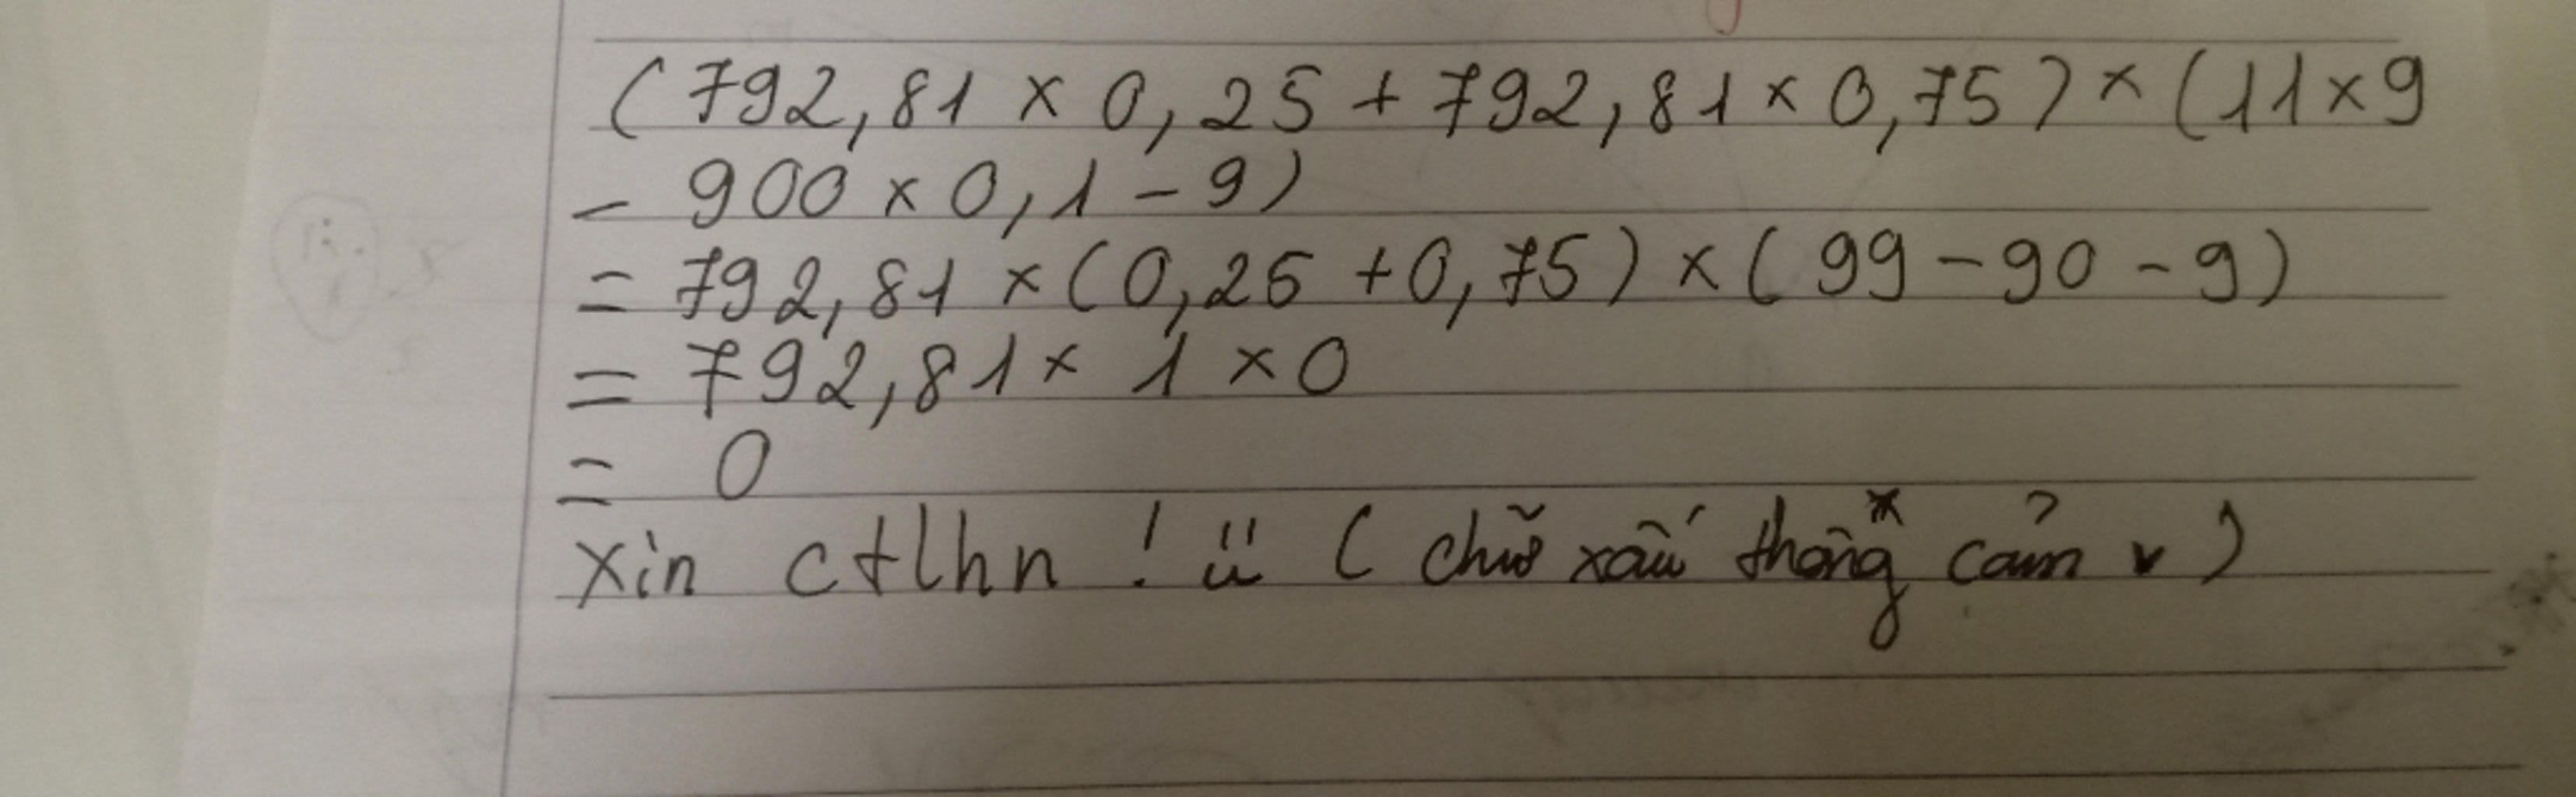 (792,81 × 0,25 + 792,81 × 0,75) × (11 × 9
- 900 × 0,1 - 9)
= 792,81 × (0,25 + 0,75) × (99 - 90 - 9)
= 792,81 × 1 × 0
= 0
xin ctlhn ! ü (chữ xấu thông cảm v)